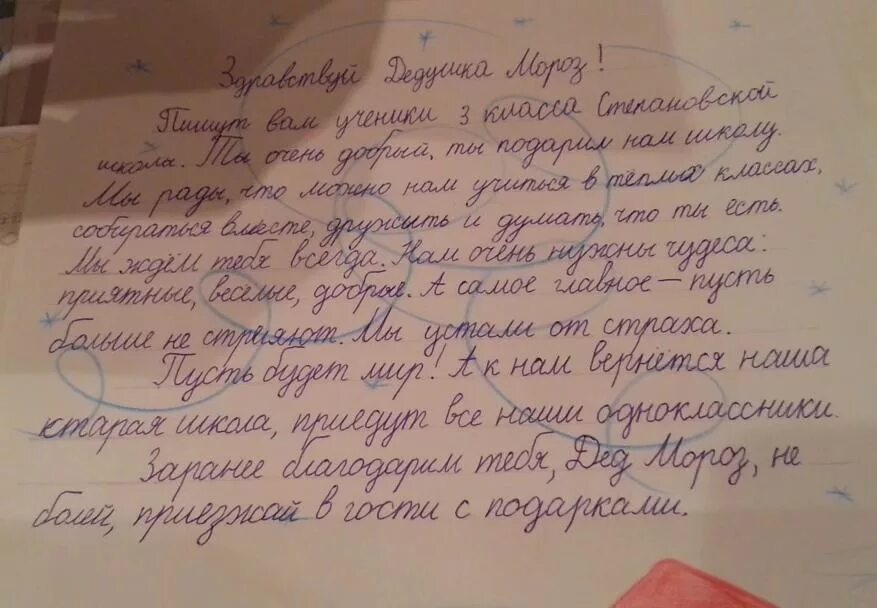 Здравствуй Дедушка Мороз!
Пишут вам ученики 3 класса Степановской
школы. Ты очень добрый, ты подарил нам школу.
Мы рады, что можно нам учиться в тёплых классах,
собираться вместе, дружить и думать, что ты есть.
Мы ждём тебя всегда. Нам очень нужны чудеса:
приятные, весёлые, добрые. А самое главное — пусть
больше не стреляют. Мы устали от страха.
Пусть будет мир! А к нам вернётся наша
старая школа, приедут все наши одноклассники.
Заранее благодарим тебя, Дед Мороз, не
болей, приезжай в гости с подарками.